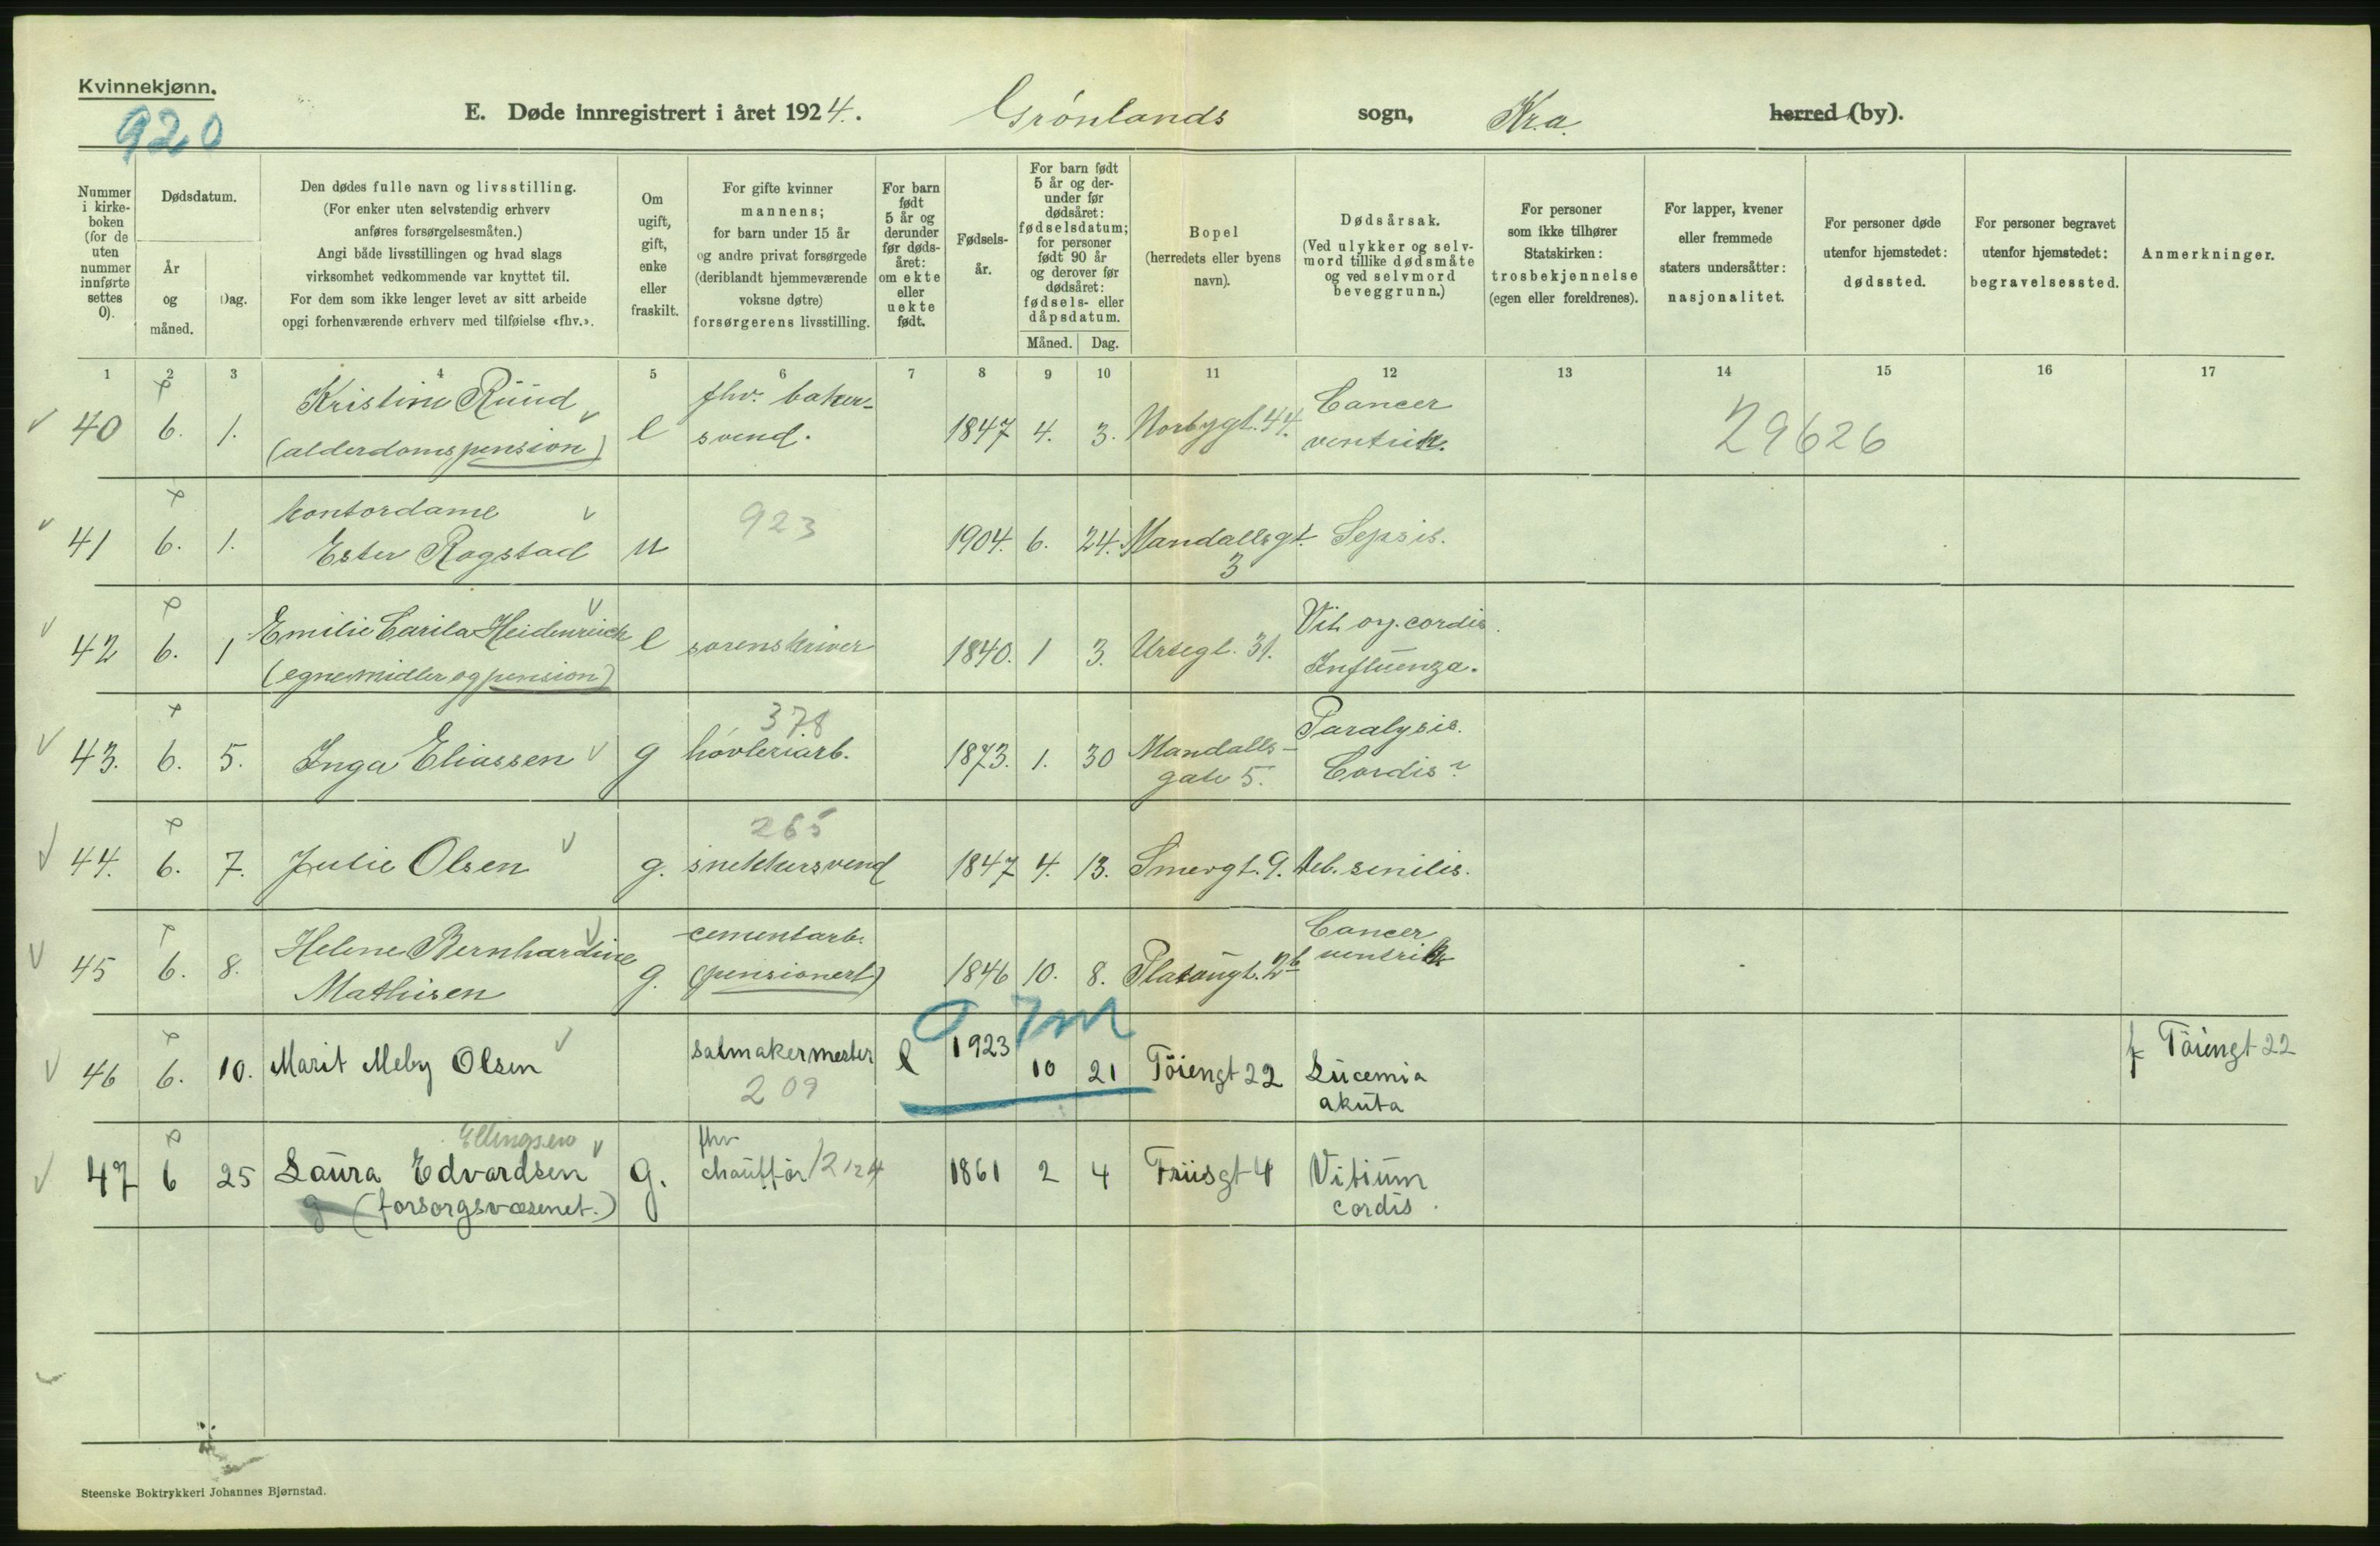 Kvinnekjønn.
920
E. Døde innregistrert i året 1924. Grónlands sogn, Kr.a. herred (by).
Nummer i kirke- boken (for de uten nummer innførte settes 0).
Dødsdatum.
År og måned.
Dag.
Den dødes fulle navn og livsstilling.
(For enker uten selvstendig erhverv
anføres forsørgelsesmåten.)
Angi både livsstillingen og hvad slags
virksomhet vedkommende var knyttet til.
For dem som ikke lenger levet av sitt arbeide
opgi forhenværende erhverv med tilføielse «fhv.».
Om ugift, gift, enke eller fraskilt.
For gifte kvinner
mannens;
for barn under 15 år
og andre privat forsørgede
(deriblandt hjemmeværende
voksne døtre)
forsørgerens livsstilling.
For barn født 5 år og derunder før døds- året: om ekte eller uekte født.
Fødsels- år.
For barn født 5 år og der- under før dødsåret: fødselsdatum; for personer født 90 år og derover før dødsåret: fødsels- eller dåpsdatum.
Måned. Dag.
Bopel
(herredets eller byens
navn).
Dødsårsak.
(Ved ulykker og selv-
mord tillike dødsmåte
og ved selvmord
beveggrunn.)
For personer
som ikke tilhører
Statskirken:
trosbekjennelse
(egen eller foreldrenes).
For lapper, kvener
eller fremmede
staters undersåtter:
nasjonalitet.
For personer døde
utenfor hjemstedet:
dødssted.
For personer begravet
utenfor hjemstedet:
begravelsessted.
Anmerkninger.
1 2 3 4 5 6 7 8 9 10 11 12 13 14 15 16 17
Kristine Rüüd fhv. baker- Cancer
40 6. 1. (alderdomspension) e svend. 1847 4. 3. Norbygt. 44. ventrik. 29626
kontordame 923
41 6. 1. Ester Rogstad u 1904. 6. 24. Mandallsgt. Sepsis.
3
Emilie Carila Heidenreich Vit. org. cordis.
42 6. 1 e sorenskriver 1840. 1 3. Urtegt. 31. Influenza.
(egne midler og pension)
378 Paralysis.
43. 6. 5. Inga Eliassen g hóvleriarb. 1873. 1. 30 Mandalls-
gate 5. Cordis?
265
44. 6. 7. Julie Olsen g. snekkersvend 1847 4. 13. Smergt. 9. Deb. senilis.
Helene Bernhardine cementarb. Cancer
45 6. 8. Mathisen g. (pensionert) 1846 10. 8. Platougt. 2b ventrik
0 7m
46 6. 10. Marit Meby Olsen salmakermester e 1923 10 21 Töiengt 22 Lücemia f Töiengt 22
209 aküta
Ellingsen fhv
47 6 25 Laüra Edvardsen g. chaüfför 12124 1861 2 4 Friisgt 4 Vitiüm
g (forsorgsvæsenet.) cordis.
Steenske Boktrykkeri Johannes Bjørnstad.